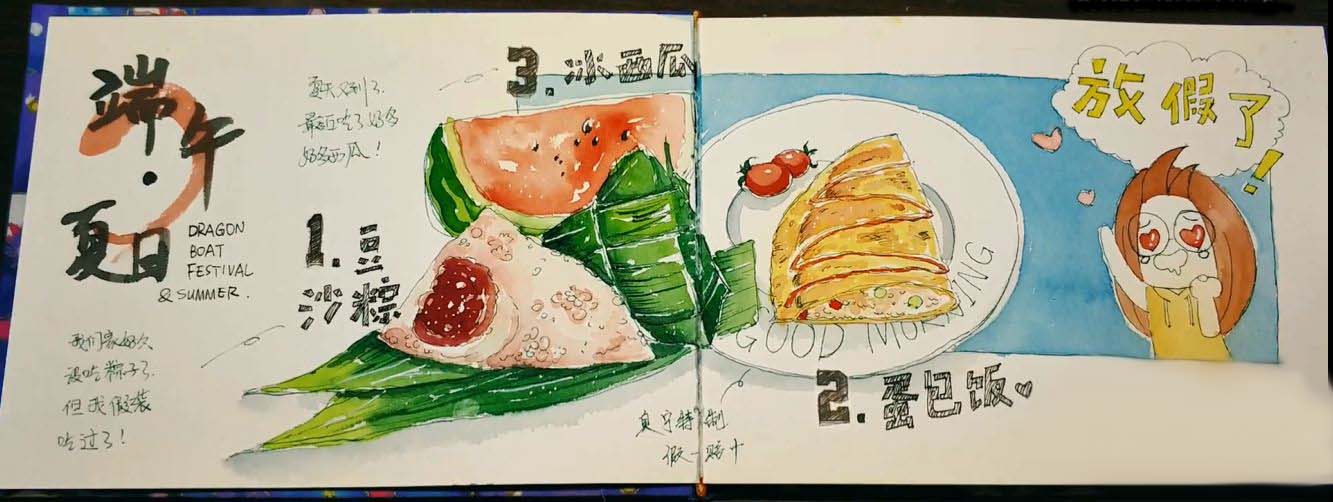 端午
·
夏日
DRAGON
BOAT
FESTIVAL
& SUMMER.
夏天又到了.
最近吃了好多
好多西瓜！
3.冰西瓜
1.豆
沙粽
我们家好久
没吃粽子了.
但我假装
吃过了！
GOOD MORNING
2.蛋包饭
特制
假一赔十
放假了！